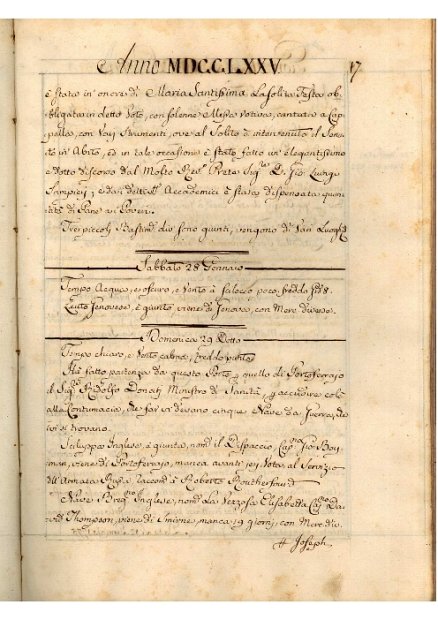 Anno MDCCLXXV 17
è stata in onore di Maria Santissima La solita Festa ob-
bligata in detto Voto, con solenne Messa votiva, cantata a Cap-
pella, con Varj Strumenti, ove al Solito è intervenuto il Sena-
to in Abito, ed in tale ocasione è stato fatto un' elegantissimo
e dotto discorso dal Molto Revdo Prete Sigre Dr Gio: Luigi
Sampieri, e da i detti Accademici è stata dispensata quan-
tità di Pane ai Poveri.
Tre piccoli Bastimti che sono giunti, vengono di Varj Luoghi
Sabbato 28 Gennaro
Tempo Acqua, e oscuro, e Vento à
Leuto Genovese, è giunto, viene di Genova, con Merci diverse.
Domenica 29 Detto
Tempo chiaro, e Vento calma,
Ha fatto partenza da questo Porto p quello di Portoferrajo
il Sigre Ridolfo Donati Ministro di Sanità, p accudire colà
alla Contumacia, che far si devano cinque Nave da Guerra, che
ivi si trovano.
Sciluppa Inglese, è giunta, nomta il Dispaccio, Capna Gio: Boy-
man, viene di Portoferrajo, manca avanti jeri Notte, al Servizio
dell'Armata Russa raccomta à Roberto Routherfourd
Nave Bregno Inglese, nomta La Vezzosa Elisabetta Capno Da-
vid Thompson, viene di Smirne, manca 19 giorni, con Merci div.
Joseph